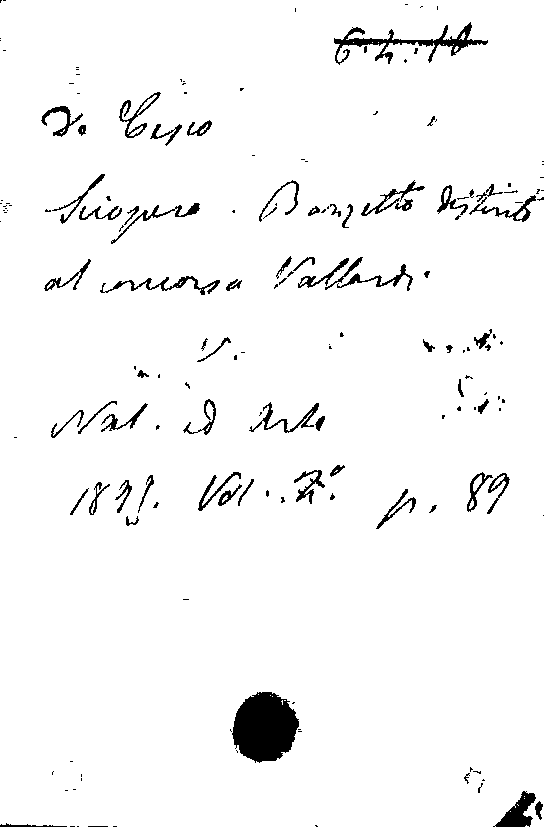 6.4.10
De
Sciopero. Bozzetto distinto
al concorso Vallardi.
V.
Nat. ed Arte
189 Vol. 2º p. 89